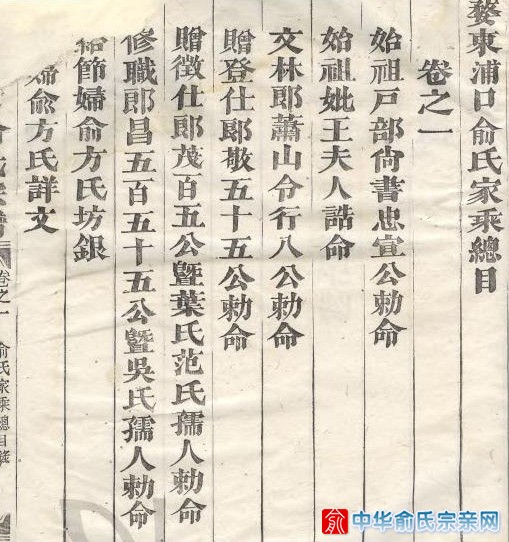 婺東浦口俞氏家乘總目
卷之一
始祖戸部尙書忠宣公勅命
始祖妣王夫人誥命
文林郎蕭山令行八公勅命
贈登仕郎敬五十五公勅命
贈徵仕郎茂百五公曁葉氏范氏孺人勅命
修職郎昌五百五十五公曁吳氏孺人勅命
節婦俞方氏坊銀
婦俞方氏詳文
卷之一 俞氏家乘總目
俞 中华俞氏宗亲网